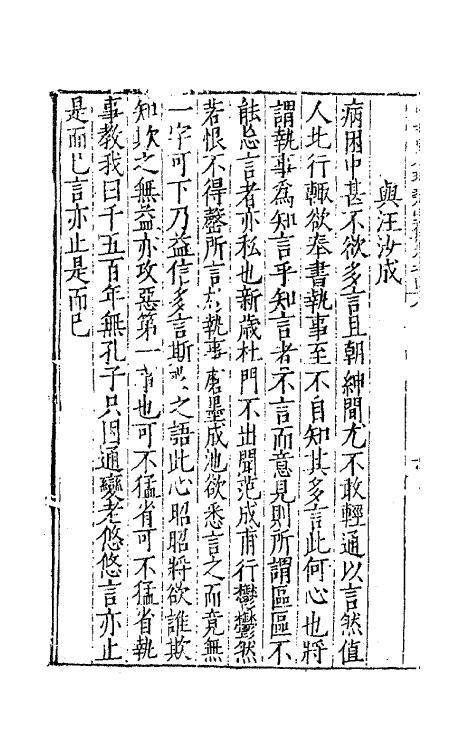 與汪汝成
病困中甚不欲多言且朝紳間尤不敢輕通以言然值
人北行輙欲奉書執事至不自知其多言此何心也將
謂執事為知言乎知言者不言而意見則所謂區區不
能忘言者亦私也新歳杜門不出聞范成甫行欝欝然
若恨不得罄所言於執事磨墨成池欲悉言之而竟無
一字可下乃益信多言斯之語此心昭昭將欲誰欺
知欺之無益亦攻惡第一青也可不猛省可不猛省執
事教我曰千五百年無孔子只因通變老悠悠言亦止
是而已言亦止是而已